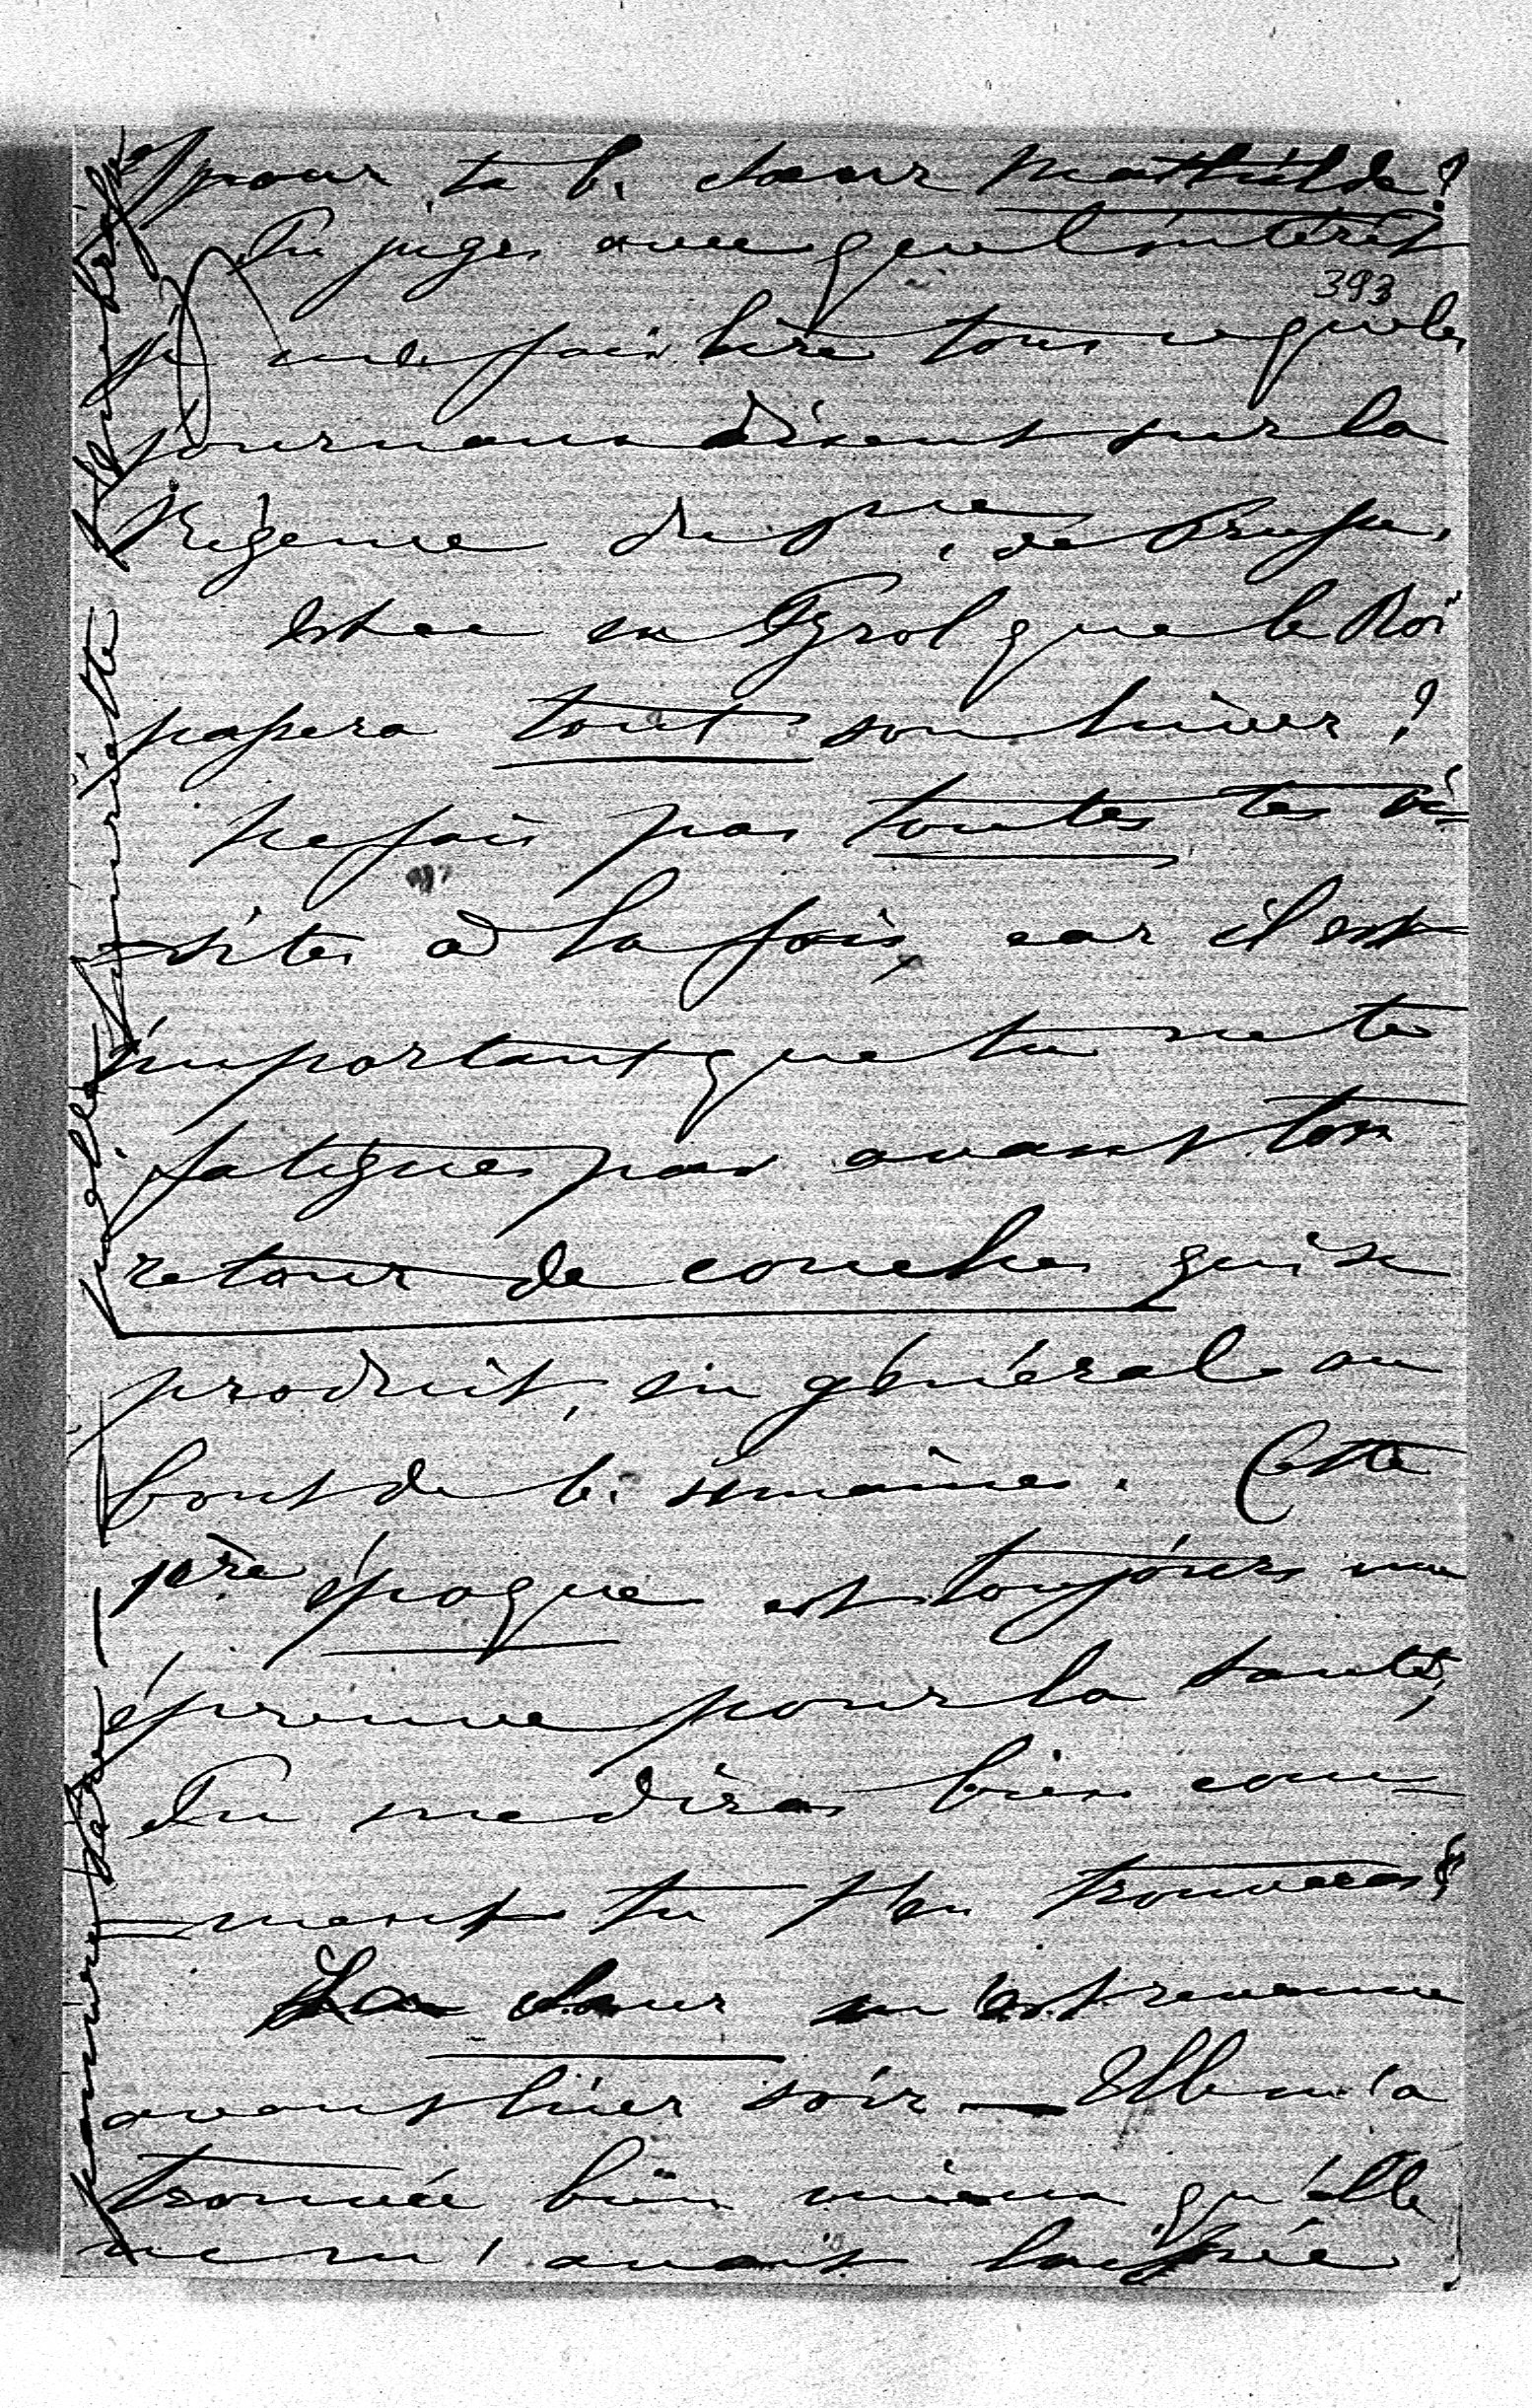 pour ta b. sœur Mathilde?
Tu juges avec quel intérêt
393
je me fais lire tous ce que les
journaux disent sur la
Régence du pce de Prusse,
Est-ce en Tyrol que le Roi
passera tout son hiver?
Ne fais pas toutes tes vi=
=sites à la fois, car il est
important que tu ne te
fatigues pas avant ton
retour de couches qui se
produit, en général au
bout de 6. semaines. Cette
1ère époque est toujours une
épreuve pour la santé;
Tu me diras bien com=
=ment tu t'en trouveras?
La sœur m'est revenue
avant hier soir — Elle m'a
trouvée bien mieux qu'elle
ne m'avait laissée